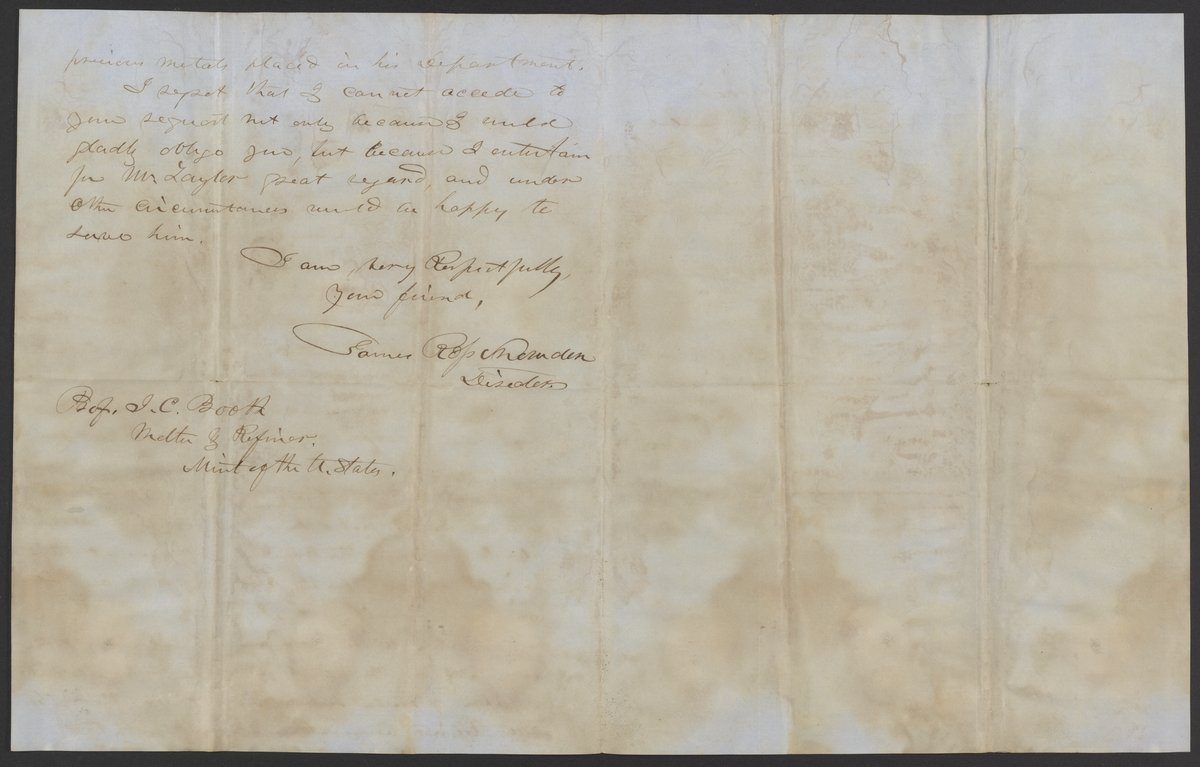 precious metals placed in his Department.
I regret that I cannot accede to
your request not only because I would
gladly oblige you, but because I entertain
for Mr Taylor great regard, and under
other circumstances would be happy to
serve him.
I am, very Respectfully,
Your friend,
James Ross Snowden
Director
Prof. J. C. Booth
Melter & Refiner.
Mint of the U. States.